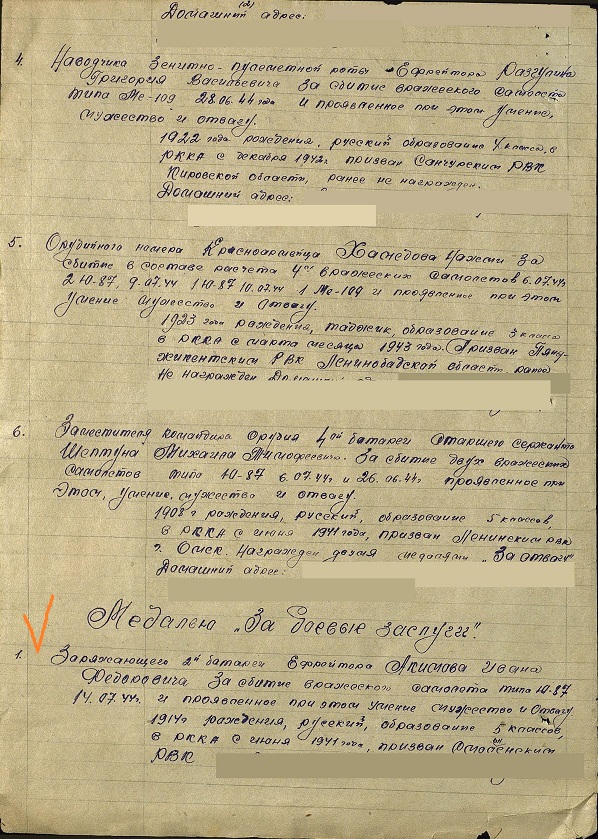 (2)
Домашний адрес:
4. Наводчика Зенитно-пулеметной роты Ефрейтора Разгулина
Григория Васильевича За сбитие вражеского самолета
типа Ме-109 28.06.44 года и проявленное при этом умение,
мужество и отвагу.
1922 года рождения, русский образование 4 класса, в
РККА с декабря 1942г. призван Санчурским РВК
Кировской области, ранее не награжден.
Домашний адрес:
5. Орудийного номера Красноармейца Хамедова За
сбитие в составе расчета 4х вражеских самолетов 6.07.44г
2 Ю-87, 9.07.44 1 Ю-87 10.07.44 1 Ме-109 и проявленное при этом
умение мужество и отвагу.
1923 года рождения, таджик, образование 3 класса
в РККА с марта месяца 1943 года. Призван Пянд-
жикентским РВК Ленинобадской области, ранее
не награжден
6. Заместителя командира Орудия 4ой батареи Старшего сержанта
Шептуна Михаила Тимофеевича. За сбитие двух вражеских
самолетов типа Ю-87 6.07.44г и 26.06.44г проявленное при
этом, умение, мужество и отвагу.
1908 г рождения, русский, образование 5 классов,
в РККА с июня 1941 года, призван Ленинским РВК
г. Омск. Награжден двумя медалями „За отвагу"
Домашний адрес:
Медалью „За боевые заслуги".
1. Заряжающего 2й батареи Ефрейтора Ивана
Федоровича За сбитие вражеского самолета типа Ю-87
14.07.44г. и проявленное при этом умение мужество и Отвагу
1914г рождения, русский, образование 5 классов,
в РККА с июня 1941 года, призван Смоленским
РВК